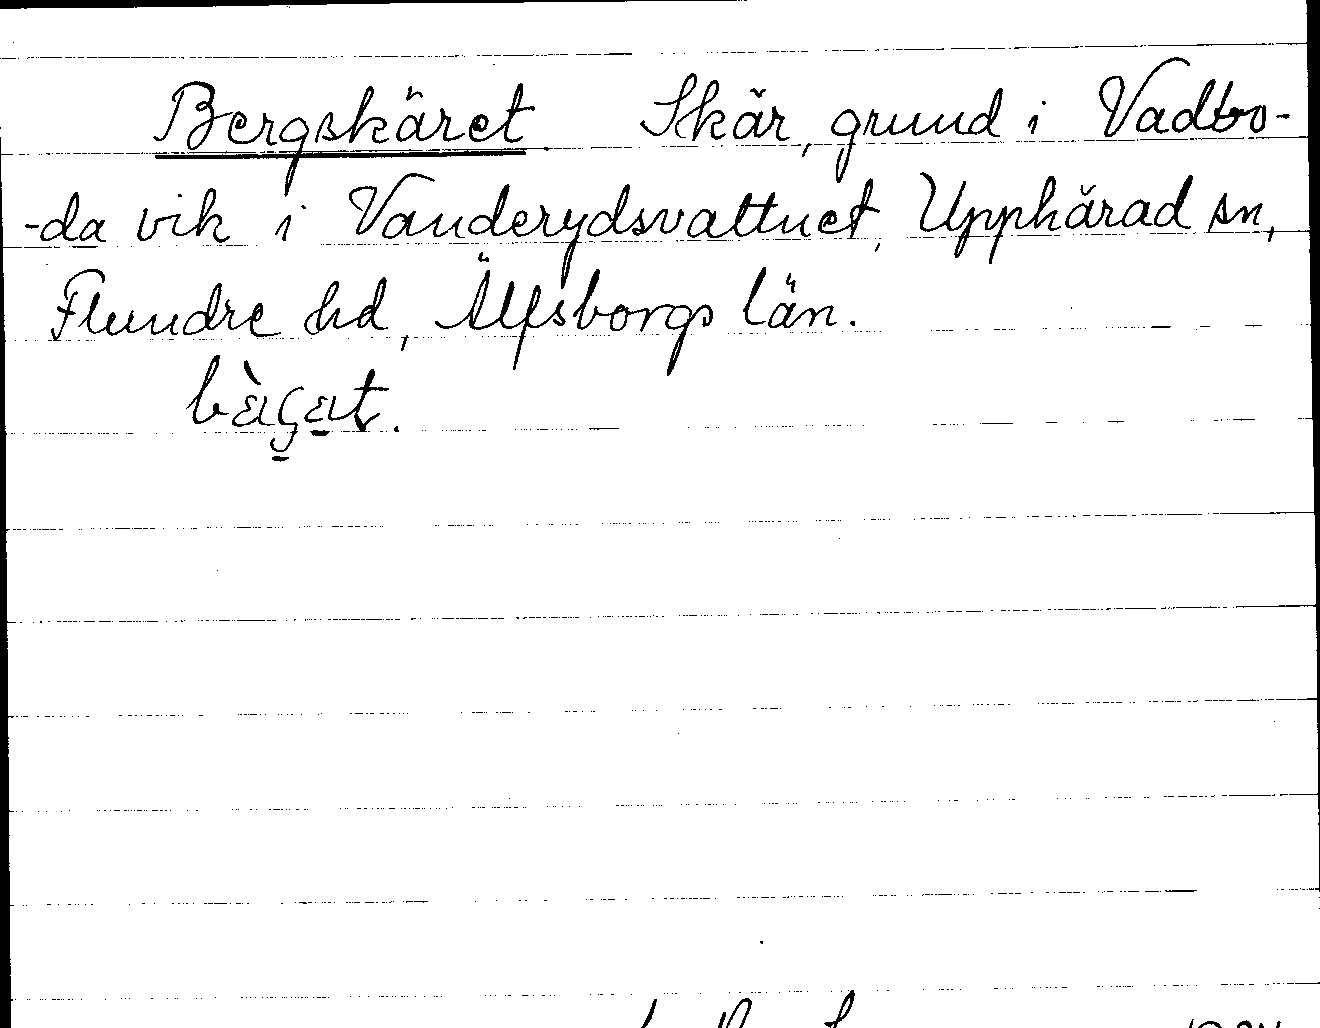 Bergskäret. Skär, grund i Vadbo-
-da vik i Vanderydsvattnet, Upphärad sn,
Flundre hd, Älfsborgs län.